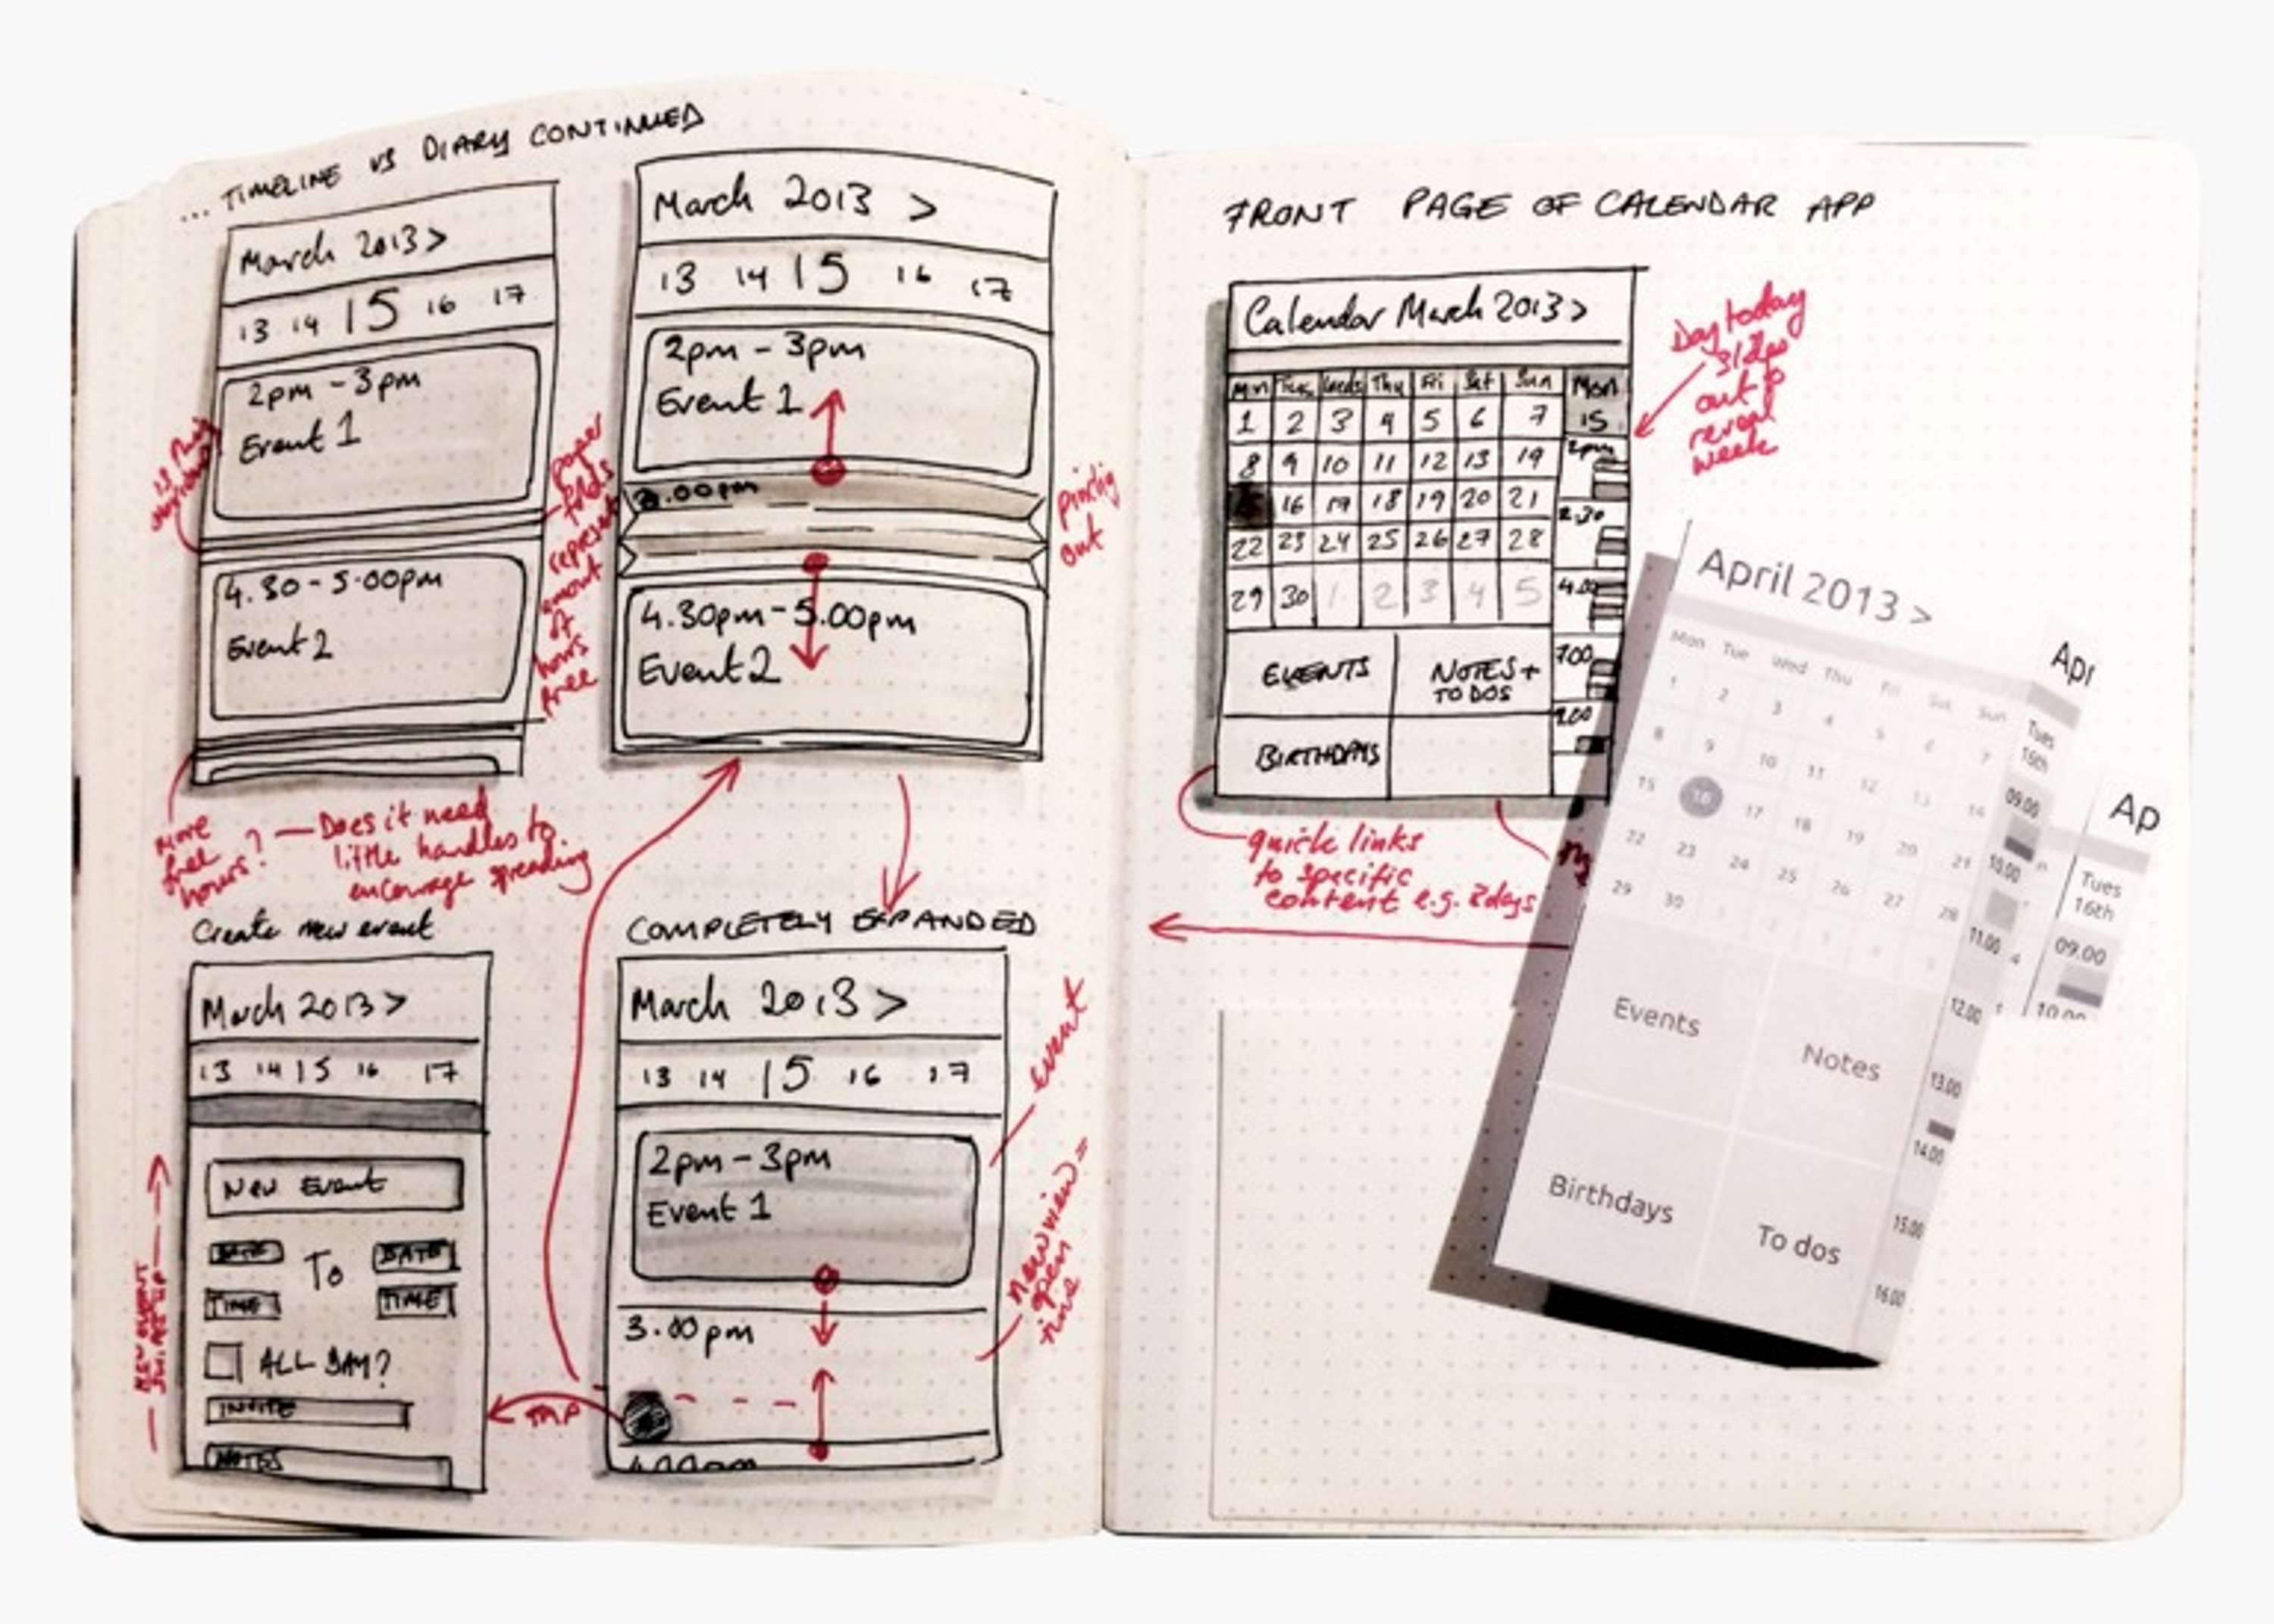 ... TIMELINE VS DIARY CONTINUED
March 2013 >
13 14 15 16 17
2pm - 3pm
Event 1
4.30 - 5.00pm
Event 2
paper
folds
represent
amount
of
hours
free
more
free
hours?
— Does it need
little handles to
encourage spreading
March 2013 >
13 14 15 16 17
2pm - 3pm
Event 1
3.00pm
4.30pm - 5.00pm
Event 2
out
Create new event
March 2013 >
13 14 15 16 17
New Event
DATE To DATE
TIME TIME
ALL DAY?
INVITE
NOTES
NEW EVENT
SWIPES UP
TAP
COMPLETELY EXPANDED
March 2013 >
13 14 15 16 17
2pm - 3pm
Event 1
3.00pm
4.00pm
event
new view =
open
time
FRONT PAGE OF CALENDAR APP
Calendar March 2013 >
Mon Tues Weds Thu Fri Sat Sun Mon
1 2 3 4 5 6 7 15
8 9 10 11 12 13 19 2pm
16 17 18 19 20 21 2.30
22 23 24 25 26 27 28
29 30 1 2 3 4 5 4.00
EVENTS NOTES + TO DOS 7.00
BIRTHDAYS
Day today
slides
out to
reveal
week
quick links
to specific
content e.g. Bdays
April 2013 >
Mon Tue Wed Thu Fri Sat Sun
1 2 3 4 5 6 7
8 9 10 11 12 13 14
15 16 17 18 19 20 21
22 23 24 25 26 27 28
29 30 1 2 3 4 5
Events
Notes
Birthdays
To dos
Tues
16th
09.00
10.00
11.00
12.00
13.00
14.00
15.00
16.00
Apr
Ap
Tues
16th
09.00
10.00